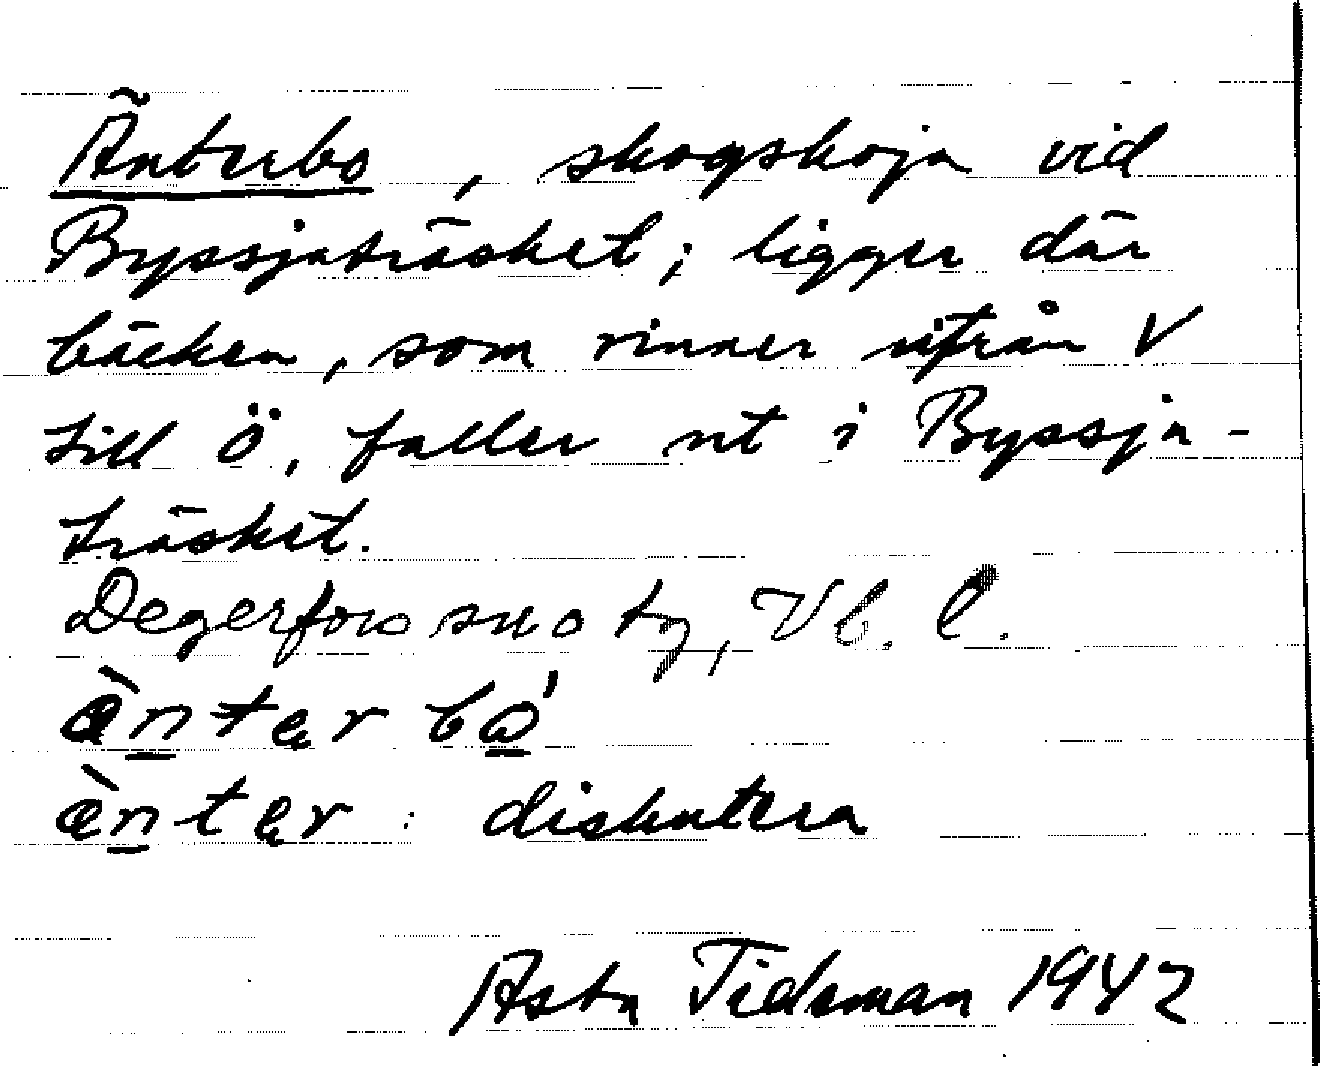 Änterbo, skogskoja vid
Byssjaträsket; ligger där
bäcken, som rinner ifrån V
till Ö, faller ut i Byssja-
träsket.
Degerfors sn o tg, Vb. l.
ànter bó
ànter : diskutera
Asta Tideman 1942